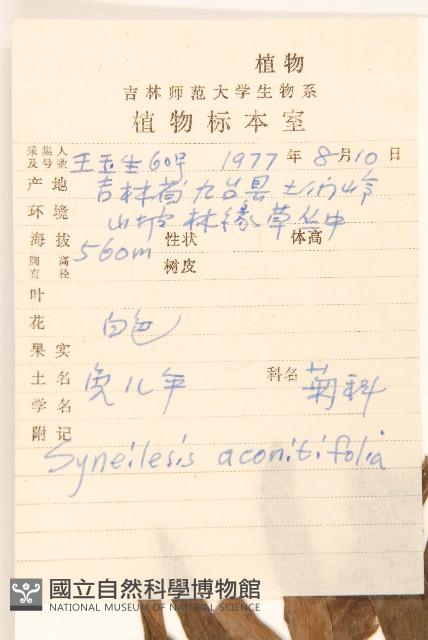 植物
吉林师范大学生物系
植物标本室
采集人及号数 王玉生60号 1977年8月10日
产地 吉林省九台县土们岭
环境 山坡林缘草丛中
海拔 560m 性状 体高
胸高直径 树皮
叶
花 白色
果实
土名 兔儿伞 科名 菊科
学名
附记
Syneilesis aconitifolia
國立自然科學博物館
NATIONAL MUSEUM OF NATURAL SCIENCE